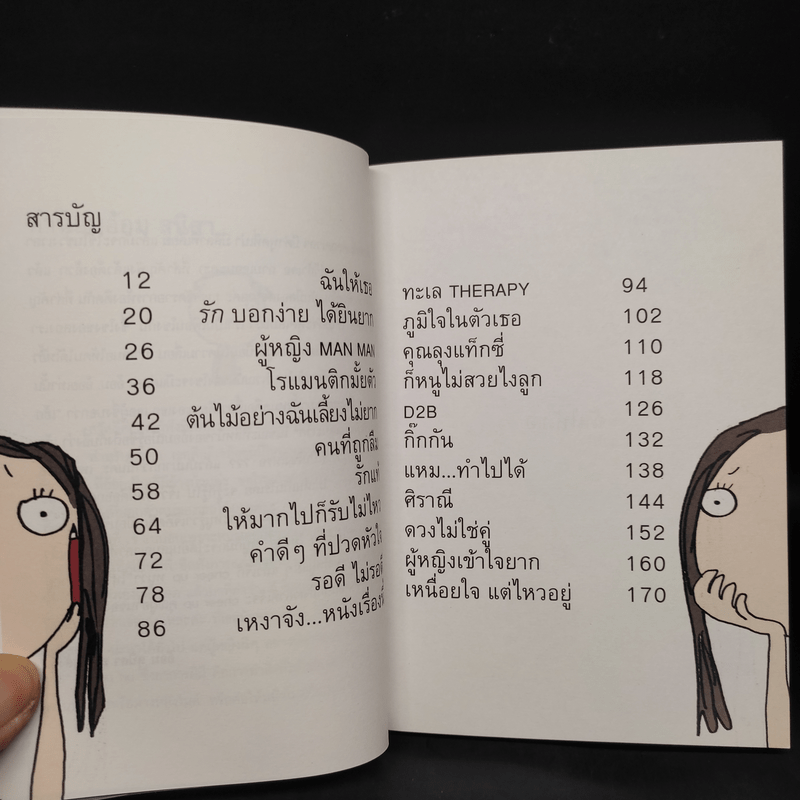 สารบัญ
12 ฉันให้เธอ
20 รัก บอกง่าย ได้ยินยาก
26 ผู้หญิง MAN MAN
36 โรแมนติกมั้ยตัว
42 ต้นไม้อย่างฉันเลี้ยงไม่ยาก
50 คนที่ถูกลืม
58 รักแท้
64 ให้มากไปก็รับไม่ไหว
72 คำดีๆ ที่ปวดหัวใจ
78 รอดี ไม่รอดี
86 เหงาจัง...หนังเรื่องนี้
ทะเล THERAPY 94
ภูมิใจในตัวเธอ 102
คุณลุงแท็กซี่ 110
ก็หนูไม่สวยไงลูก 118
D2B 126
กิ๊กกัน 132
แหม...ทำไปได้ 138
ศิราณี 144
ดวงไม่ใช่คู่ 152
ผู้หญิงเข้าใจยาก 160
เหนื่อยใจ แต่ไหวอยู่ 170